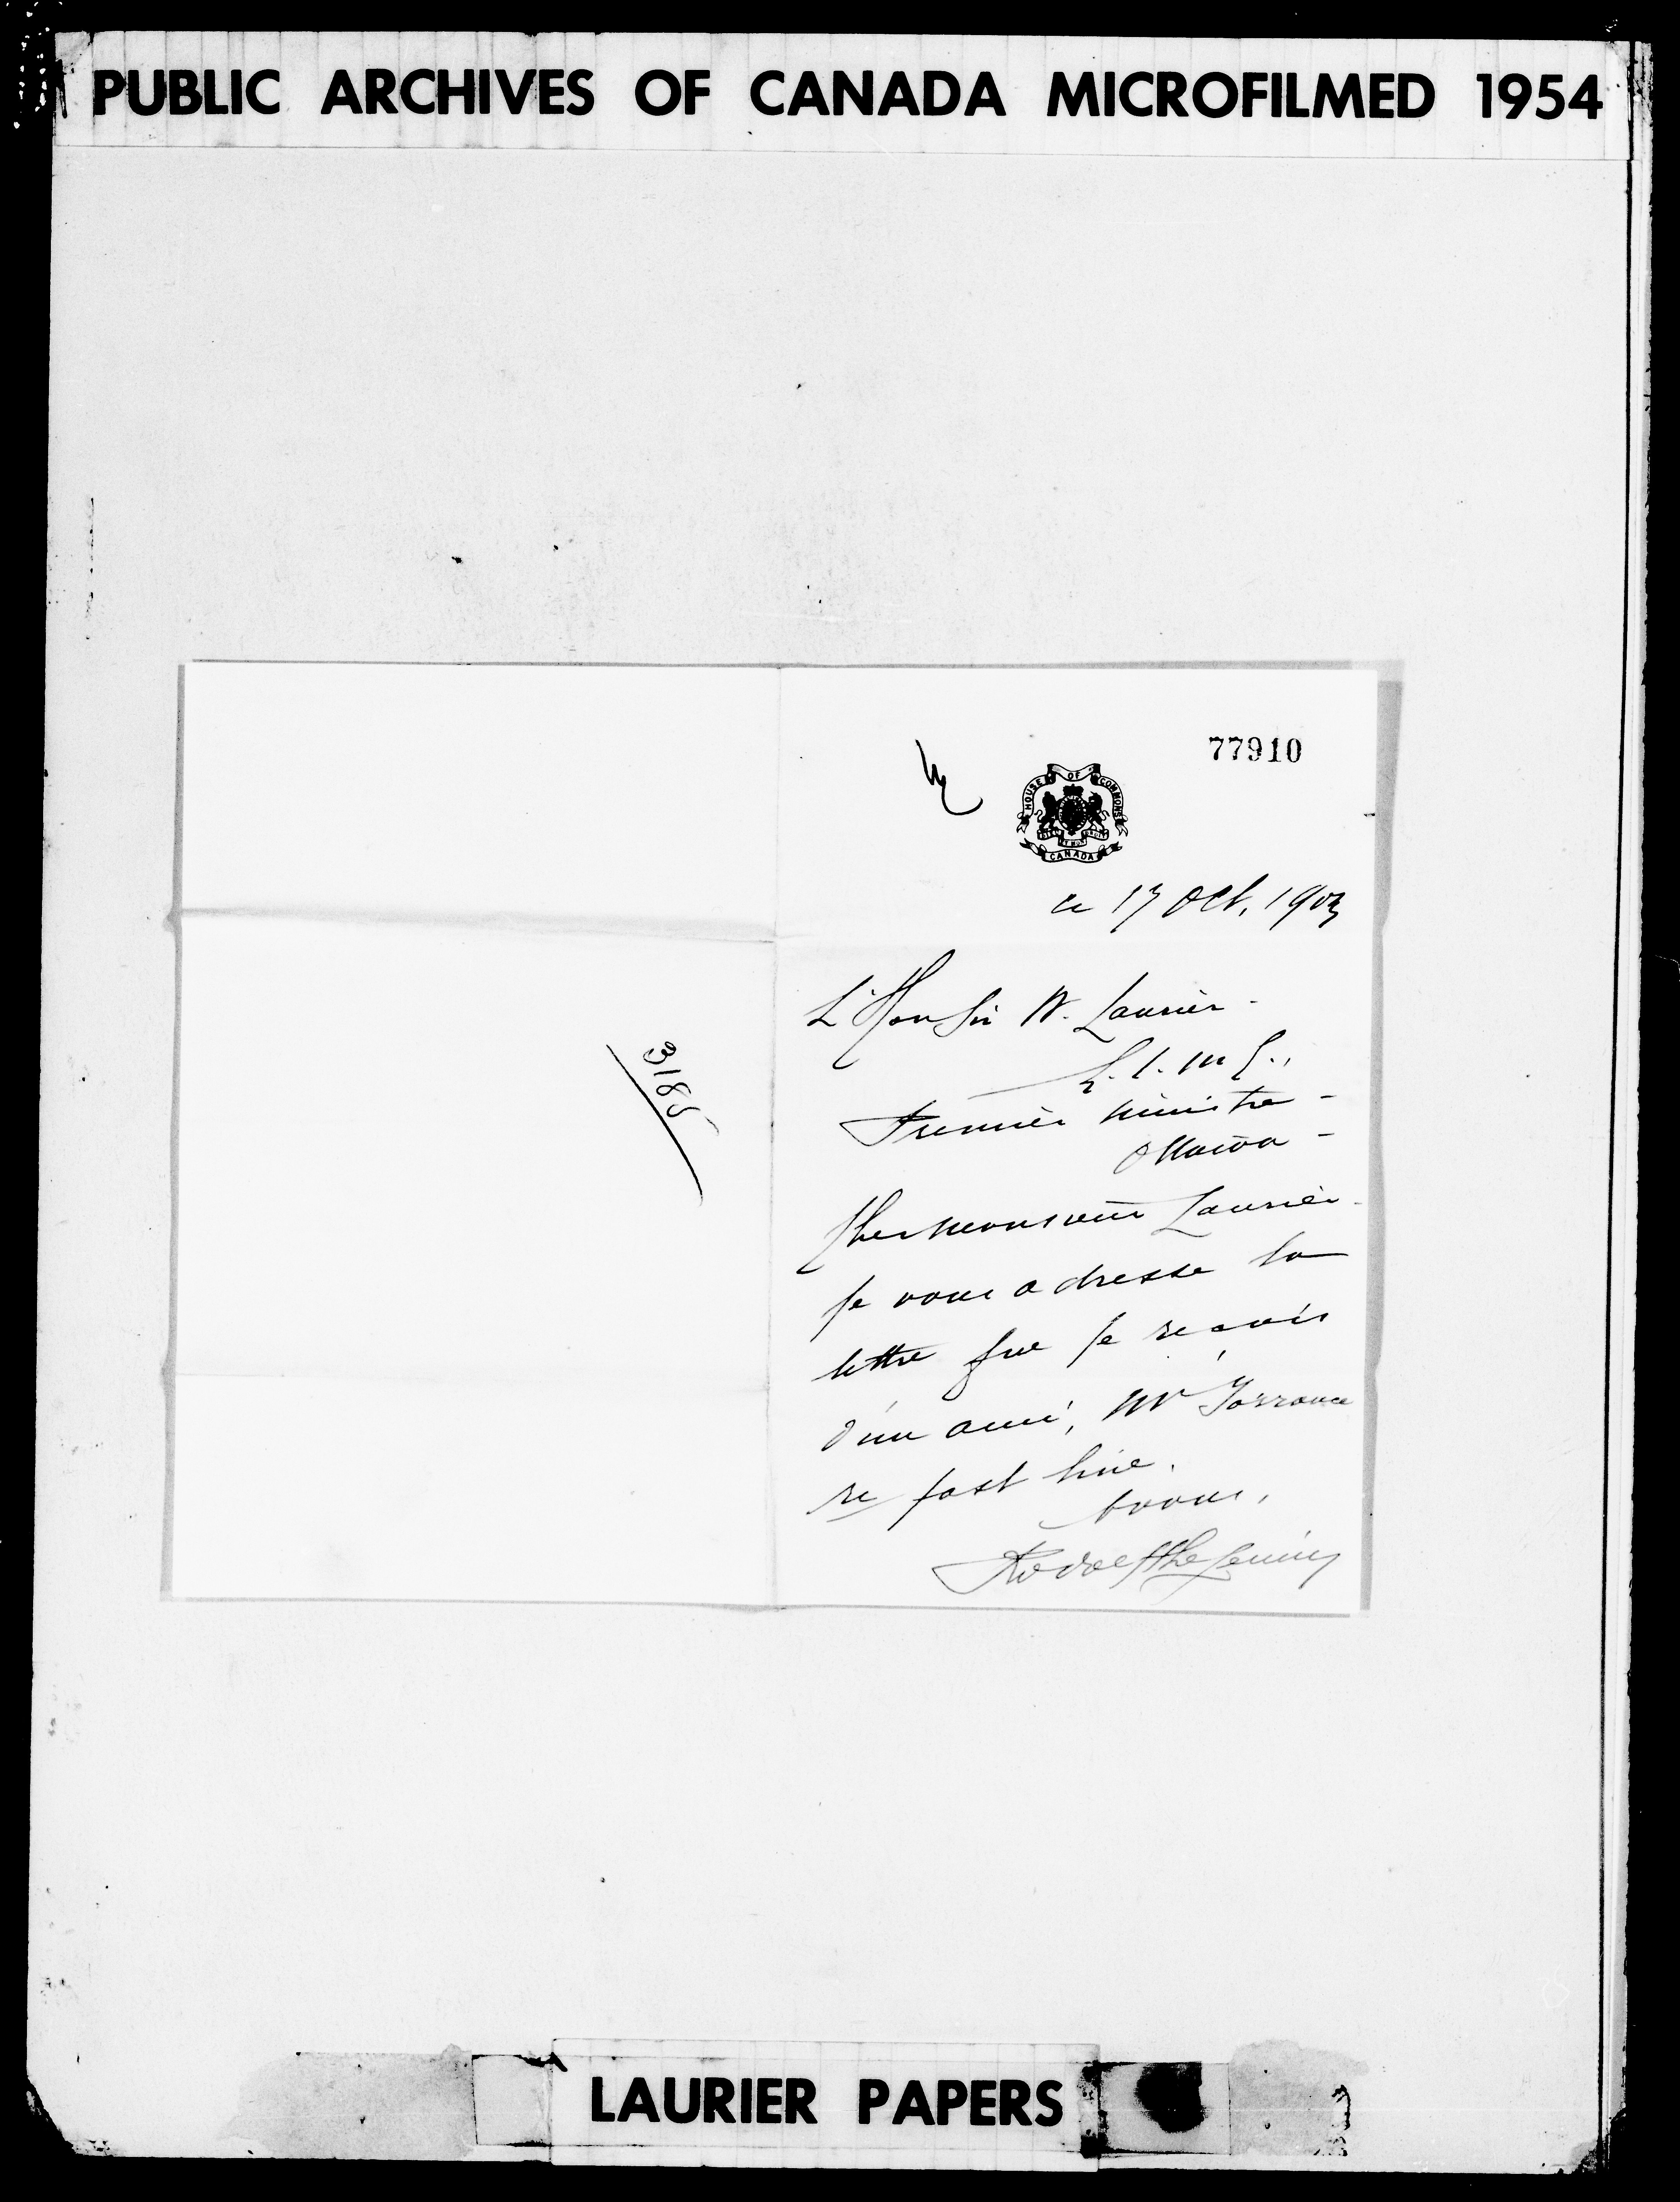 PUBLIC ARCHIVES OF CANADA MICROFILMED 1954
77910
HOUSE OF COMMONS
CANADA
ce 17 Oct. 1903
L'Hon Sir W. Laurier -
Premier ministre -
Ottawa -
Cher monsieur Laurier -
Je vous adresse la
lettre que je reçois
d'un ami, Mr Torrance
re fast line.
à vous,
Rodolphe Lemieux
3188
LAURIER PAPERS